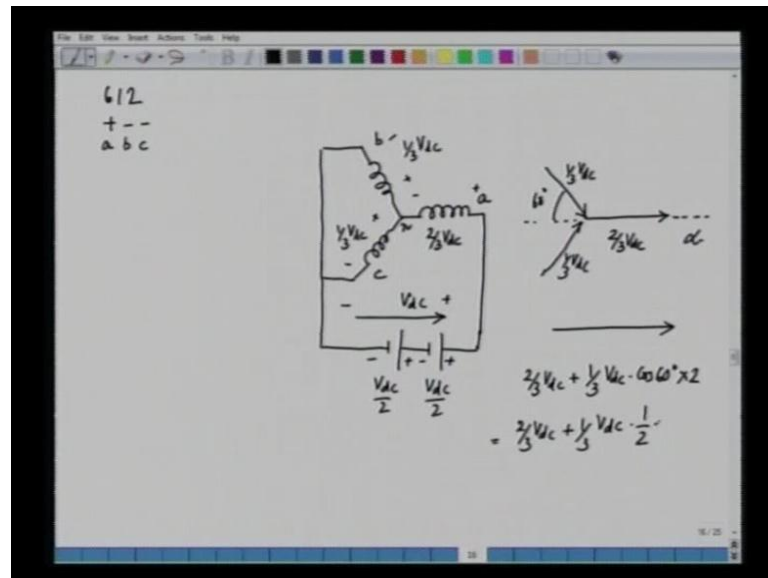 File Edit View Insert Actions Tools Help
612
+ - -
a b c
b 1/3 Vdc
+
-
+
a
n
2/3 Vdc
+
1/3 Vdc
-
c
- Vdc +
- + - +
Vdc/2 Vdc/2
1/3 Vdc
60°
2/3 Vdc
α
1/3 Vdc
2/3 Vdc + 1/3 Vdc · Cos 60° × 2
= 2/3 Vdc + 1/3 Vdc · 1/2 ·
16/25
16